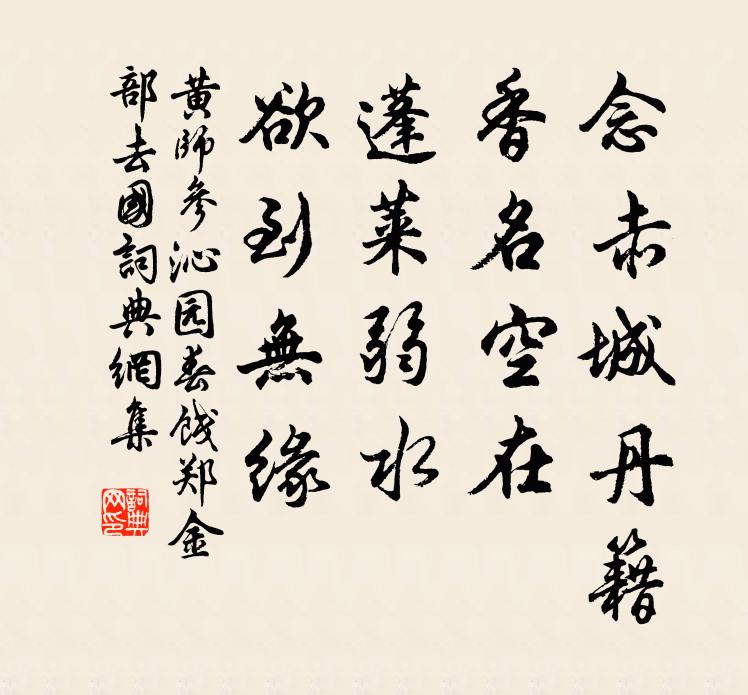 念赤城丹籍
香名空在
蓬莱弱水
欲到無緣
黄师参沁园春饯郑金
部去國詞典網集
詞典网印